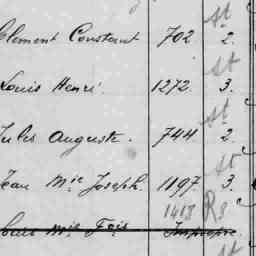 st
Clement Constant 702 2.
st
Louis Henri 1272 3.
st
Jules Auguste. 744 2
st
Jean Mie Joseph. 1197 3.
1418 R3
Louis Mie Fois Impropre.
st